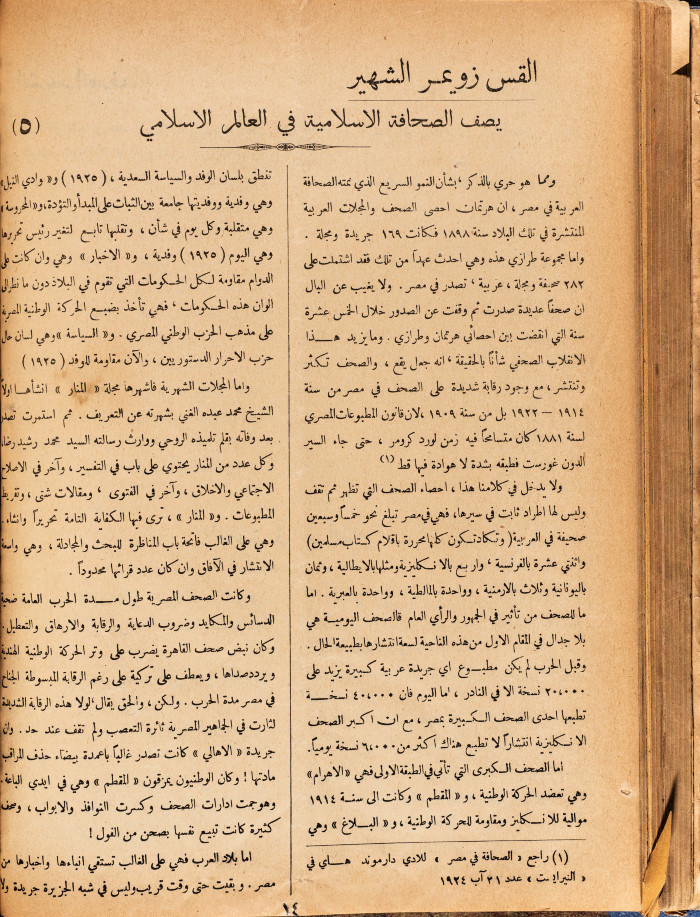 القس زويمر الشهير
يصف الصحافة الاسلامية في العالم الاسلامي
(٥)
ومما هو حري بالذكر ، بشأن النمو السريع الذي نمته الصحافة
العربية في مصر ، ان هرتمان احصى الصحف والمجلات العربية
المنتشرة في تلك البلاد سنة ١٨٩٨ فكانت ١٦٩ جريدة ومجلة .
واما مجموعة طرازي هذه وهي احدث عهداً من تلك فقد اشتملت على
٢٨٢ صحيفة ومجلة ، عربية ، تصدر في مصر . ولا يغيب عن البال
ان صحفاً عديدة صدرت ثم وقفت عن الصدور خلال الخمس عشرة
سنة التي انقضت بين احصائي هرتمان وطرازي . ومما يزيد هـذا
الانقلاب الصحفي شأناً بالحقيقة ، انه جعل يقع ، والصحف تكثر
وتنتشر ، مع وجود رقابة شديدة على الصحف في مصر من سنة
١٩١٤ – ١٩٢٢ بل من سنة ١٩٠٩ ، لان قانون المطبوعات المصري
لسنة ١٨٨١ كان متسامحاً فيه زمن لورد كرومر ، حتى جاء السير
الدون غورست فطبقه بشدة لا هوادة فيها قط (١)
ولا يدخل في كلامنا هذا ، احصاء الصحف التي تظهر ثم تقف
وليس لها اطراد ثابت في سيرها ، فهي في مصر تبلغ نحو خمساً وسبعين
صحيفة في العربية ( وتكاد تكون كلها محررة باقلام كتاب مسلمين )
واثنتي عشرة بالفرنسية ، واربع بالانكليزية ومثلها بالايطالية ، وثمان
باليونانية وثلاث بالارمنية ، وواحدة بالمالطية ، وواحدة بالعبرية . اما
ما للصحف من تأثير في الجمهور والرأي العام فالصحف اليومية هي
بلا جدال في المقام الاول من هذه الناحية لسعة انتشارها بطبيعة الحال .
وقبل الحرب لم يكن مطبوع اي جريدة عربية كبيرة يزيد على
٢٠،٠٠٠ نسخة الا في النادر ، اما اليوم فان ٤٠،٠٠٠ نسخـة
تطبعها احدى الصحف الكبيرة بمصر ، مع ان اكبر الصحف
الانكليزية انتشاراً لا تطبع هناك اكثر من ٦،٠٠٠ نسخة يومياً .
اما الصحف الكبرى التي تأتي في الطبقة الاولى فهي « الاهرام »
وهي تعضد الحركة الوطنية ، و « المقطم » وكانت الى سنـة ١٩١٤
موالية للانكليز ومقاومة للحركة الوطنية ، و « البلاغ » وهي
(١) راجع « الصحافة في مصر » للادي دارموند هـاي في
« النيرايست » عدد ٣١ آب ١٩٢٤
تنطق بلسان الوفد والسياسة السعدية ، ( ١٩٢٥ ) و « وادي النيل »
وهي وفدية ووفديتها جامعة بين الثبات على المبدأ والتؤدة ، و « المحروسة »
وهي متقلبة وكل يوم في شأن ، وتقلبها تابـع لتغير رئيس تحريرها
وهي اليوم ( ١٩٢٥ ) وفدية ، و « الاخبار » وهي وان كانت على
الدوام مقاومة لـكل الحـكومات التي تقوم في البلاد دون ما نظر الى
الوان هذه الحكومات ، فهي تأخذ بضبع الحركة الوطنية المصرية
على مذهب الحزب الوطني المصري . و « السياسة » وهي لسان حال
حزب الاحرار الدستوريين ، والآن مقاومة للوفد ( ١٩٢٥ )
واما المجلات الشهرية فاشهرها مجلة « المنار » انشأهـا اولاً
الشيخ محمد عبده الغني بشهرته عن التعريف . ثم استمرت تصدر
بعد وفاته بقلم تلميذه الروحي ووارث رسالته السيد محمد رشيد رضا ،
وكل عدد من المنار يحتوي على باب في التفسير ، وآخر في الاصلاح
الاجتماعي والاخلاق ، وآخر في الفتوى ، ومقالات شتى ، وتقريظ
المطبوعات . و « المنار » ، ترى فيها الكفاية التامة تحريراً وانشاء ،
وهي على الغالب فاتحة باب المناظرة للبحث والمجادلة ، وهي واسعة
الانتشار في الآفاق وان كان عدد قرائها محدوداً .
وكانت الصحف المصرية طول مـدة الحرب العامة ضحية
الدسائس والمكايد وضروب الدعاية والرقابة والارهاق والتعطيل .
وكان نبض صحف القاهرة يضرب على وتر الحركة الوطنية الهندية
ويردد صداها ، ويعطف على تركية على رغم الرقابة المبسوطة الجناح
في مصر مدة الحرب . ولكن ، والحق يقال ، لولا هذه الرقابة الشديدة
لثارت في الجماهير المصرية ثائرة التعصب ولم تقف عند حد . وان
جريدة « الاهالي » كانت تصدر غالباً باعمدة بيضاء حذف المراقب
مادتها ! وكان الوطنيون يمزقون « المقطم » وهي في ايدي الباعة .
وهوجمت ادارات الصحف وكسرت النوافذ والابواب ، وصحف
كثيرة كانت تبيع نفسها بصحن من الفول !
اما بلاد العرب فهي على الغالب تستقي انباءها واخبارها من
مصر . و بقيت حتى وقت قريب وليس في شبه الجزيرة جريدة ولا
١٤